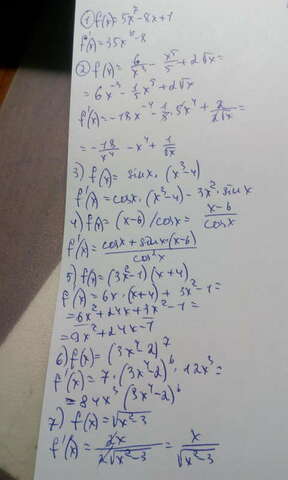 ① f(x)=5x⁷-8x+1
f'(x)=35x⁶-8
② f(x)=6/x³-x⁵/5+2√x=
=6x⁻³-1/5x⁵+2√x
f'(x)=-18x⁻⁴-1/5·5x⁴+2/2√x=
=-18/x⁴-x⁴+1/√x
3) f(x)=sinx·(x³-4)
f'(x)=cosx·(x³-4)-3x²·sinx
4) f(x)=(x-6)/cosx=x-6/cosx
f'(x)=cosx+sinx·(x-6)/cos²x
5) f(x)=(3x²-1)(x+4)
f'(x)=6x·(x+4)+3x²-1=
=6x²+24x+3x²-1=
=9x²+24x-1
6) f(x)=(3x⁴-2)⁷
f'(x)=7·(3x⁴-2)⁶·12x³=
=84x³(3x⁴-2)⁶
7) f(x)=√x²-3
f'(x)=2x/2√x²-3=x/√x²-3